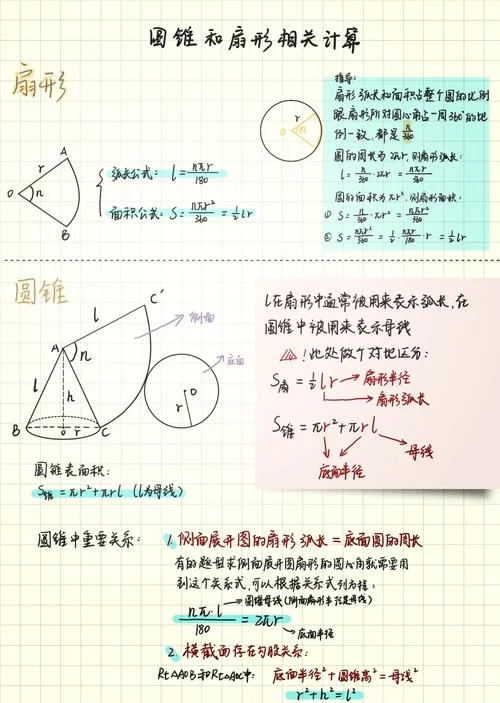 圆锥和扇形相关计算
扇形
A
r
O
n
B
弧长公式: l = nπr/180
面积公式: S = nπr²/360 = 1/2 lr
r
O
n
推导:
扇形弧长和面积占整个圆的比例
跟扇形所对圆心角占一周360°的比
例一致,都是 n/360
圆的周长为2πr,则扇形弧长:
l = n/360 · 2πr = nπr/180
圆的面积为πr²,则扇形面积:
① S = n/360 · πr² = nπr²/360
② S = nπr²/360 = 1/2 · nπr/180 · r = 1/2 lr
圆锥
l
C'
A
n
侧面
底面
l
h
O
r
B
o
r
C
圆锥表面积:
S锥 = πr² + πrl (l为母线)
l在扇形中通常被用来表示弧长,在
圆锥中被用来表示母线
! 此处做个对比区分:
S扇 = 1/2 lr → 扇形半径
扇形弧长
S锥 = πr² + πrl
母线
底面半径
圆锥中重要关系:
1. 侧面展开图的扇形弧长 = 底面圆的周长
有的题型求侧面展开图扇形的圆心角就需要用
到这个关系式,可以根据关系式列方程:
圆锥母线(侧面扇形半径是母线)
nπ·l/180 = 2πr
底面半径
2. 横截面存在勾股关系:
Rt△AOB和Rt△AOC中:
底面半径² + 圆锥高² = 母线²
r² + h² = l²